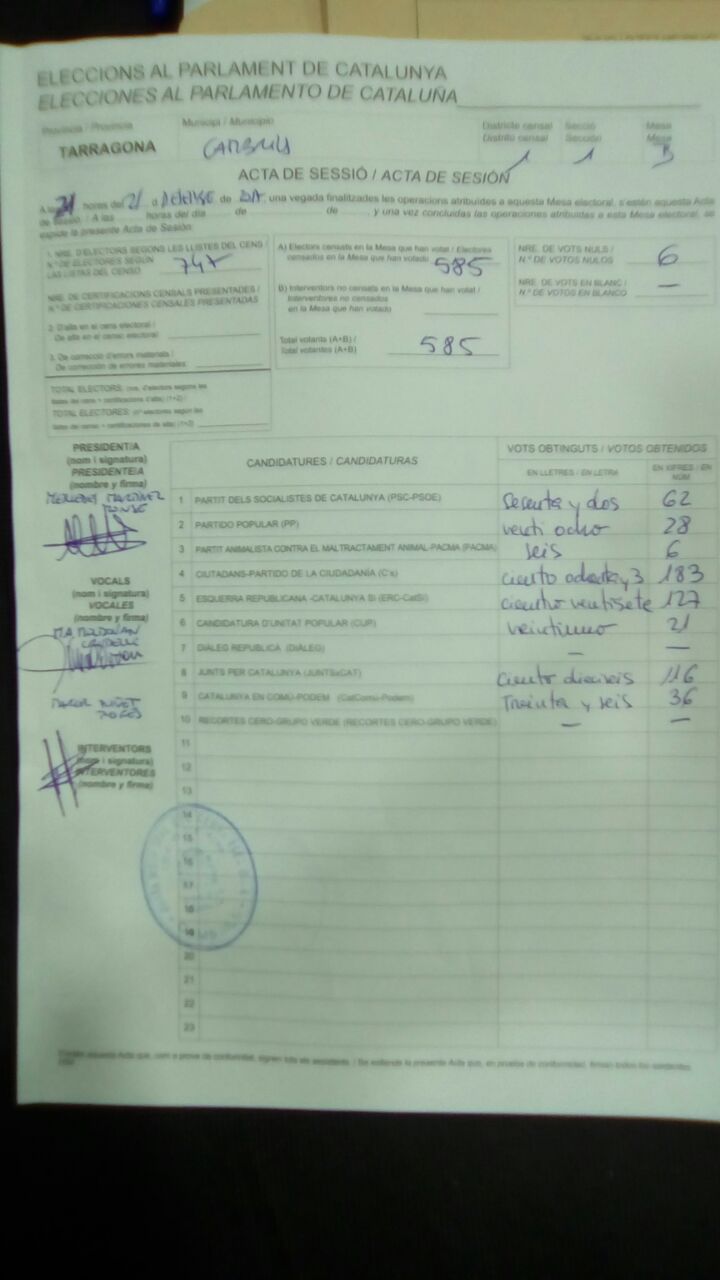 ELECCIONS AL PARLAMENT DE CATALUNYA
ELECCIONES AL PARLAMENTO DE CATALUÑA
Província / Provincia
Municipi / Municipio
Districte censal
Distrito censal
Secció
Sección
Mesa
Mesa
TARRAGONA
CAMBRILS
1
1
B
ACTA DE SESSIÓ / ACTA DE SESIÓN
A les 21 hores del 21 d de una vegada finalitzades les operacions atribuïdes a aquesta Mesa electoral, s'estén aquesta Acta
de sessió. / A las horas del día de de , y una vez concluidas las operaciones atribuidas a esta Mesa electoral, se
expide la presente Acta de Sesión:
1. NRE. D'ELECTORS SEGONS LES LLISTES DEL CENS /
N.º DE ELECTORES SEGÚN
LAS LISTAS DEL CENSO
747
NRE. DE CERTIFICACIONS CENSALS PRESENTADES /
N.º DE CERTIFICACIONES CENSALES PRESENTADAS
2. D'alta en el cens electoral /
De alta en el censo electoral
3. De correcció d'errors materials /
De corrección de errores materiales:
TOTAL ELECTORS: (nre. d'electors segons les
llistes del cens + certificacions d'alta) (1+2) /
TOTAL ELECTORES: (nº electores según las
listas del censo + certificaciones de alta) (1+2)
A) Electors censats en la Mesa que han votat / Electores
censados en la Mesa que han votado
585
B) Interventors no censats en la Mesa que han votat /
Interventores no censados
en la Mesa que han votado
Total votants (A+B) /
Total votantes (A+B)
585
NRE. DE VOTS NULS /
N.º DE VOTOS NULOS
6
NRE. DE VOTS EN BLANC /
N.º DE VOTOS EN BLANCO
—
PRESIDENT/A
(nom i signatura)
PRESIDENTE/A
(nombre y firma)
VOCALS
(nom i signatura)
VOCALES
(nombre y firma)
INTERVENTORS
(nom i signatura)
INTERVENTORES
(nombre y firma)
CANDIDATURES / CANDIDATURAS
VOTS OBTINGUTS / VOTOS OBTENIDOS
EN LLETRES / EN LETRA
EN XIFRES / EN NÚM
1 PARTIT DELS SOCIALISTES DE CATALUNYA (PSC-PSOE) sesenta y dos 62
2 PARTIDO POPULAR (PP) venti ocho 28
3 PARTIT ANIMALISTA CONTRA EL MALTRACTAMENT ANIMAL-PACMA (PACMA) seis 6
4 CIUTADANS-PARTIDO DE LA CIUDADANÍA (C's) ciento ochenta y 3 183
5 ESQUERRA REPUBLICANA -CATALUNYA SÍ (ERC-CatSí) ciento ventisete 127
6 CANDIDATURA D'UNITAT POPULAR (CUP) veintiuno 21
7 DIÀLEG REPUBLICÀ (DIÀLEG) — —
8 JUNTS PER CATALUNYA (JUNTSxCAT) ciento dieciseis 116
9 CATALUNYA EN COMÚ-PODEM (CatComú-Podem) Treinta y seis 36
10 RECORTES CERO-GRUPO VERDE (RECORTES CERO-GRUPO VERDE) — —
11
12
13
14
15
16
17
18
19
20
21
22
23